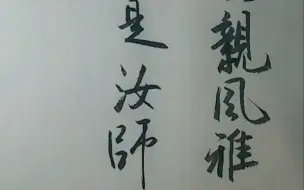 親風雅
是汝師